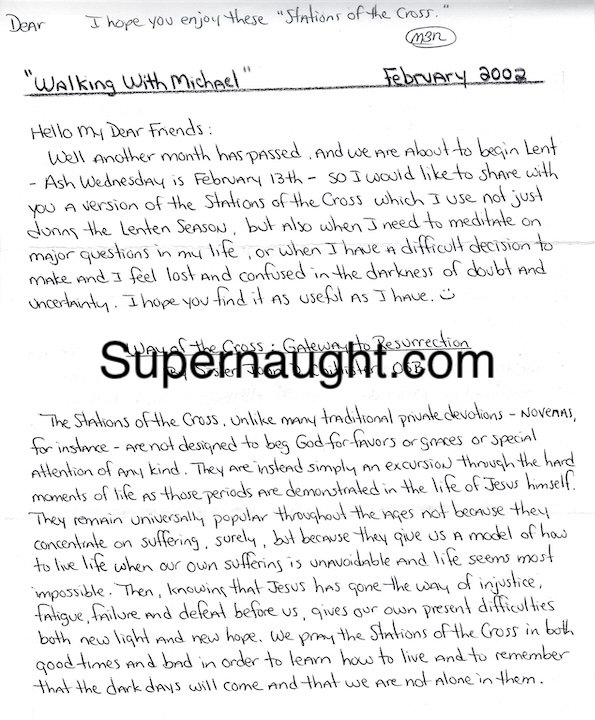 Dear I hope you enjoy these "Stations of the Cross."
M3R
"Walking With Michael" February 2002
Hello My Dear Friends:
Well Another month has passed. And we are About to begin Lent
- Ash Wednesday is February 13th - so I would like to share with
you A version of the Stations of the Cross which I use not just
during the Lenten Season, but Also when I need to meditate on
major questions in my life, or when I have a difficult decision to
make and I feel lost and confused in the darkness of doubt and
uncertainty. I hope you find it as useful as I have. ☺
Way of the Cross: Gateway to Resurrection
Supernaught.com
By Sister Joan D. Chittister, OSB
The Stations of the Cross, unlike many traditional private devotions - Novenas,
for instance - are not designed to beg God for favors or graces or special
Attention of any kind. They are instead simply an excursion through the hard
moments of life as those periods are demonstrated in the life of Jesus himself.
They remain universally popular throughout the ages not because they
concentrate on suffering, surely, but because they give us a model of how
to live life when our own suffering is unavoidable and life seems most
impossible. Then, knowing that Jesus has gone the way of injustice,
fatigue, failure and defeat before us, gives our own present difficulties
both new light and new hope. We pray the Stations of the Cross in both
good times and bad in order to learn how to live and to remember
that the dark days will come and that we are not alone in them.